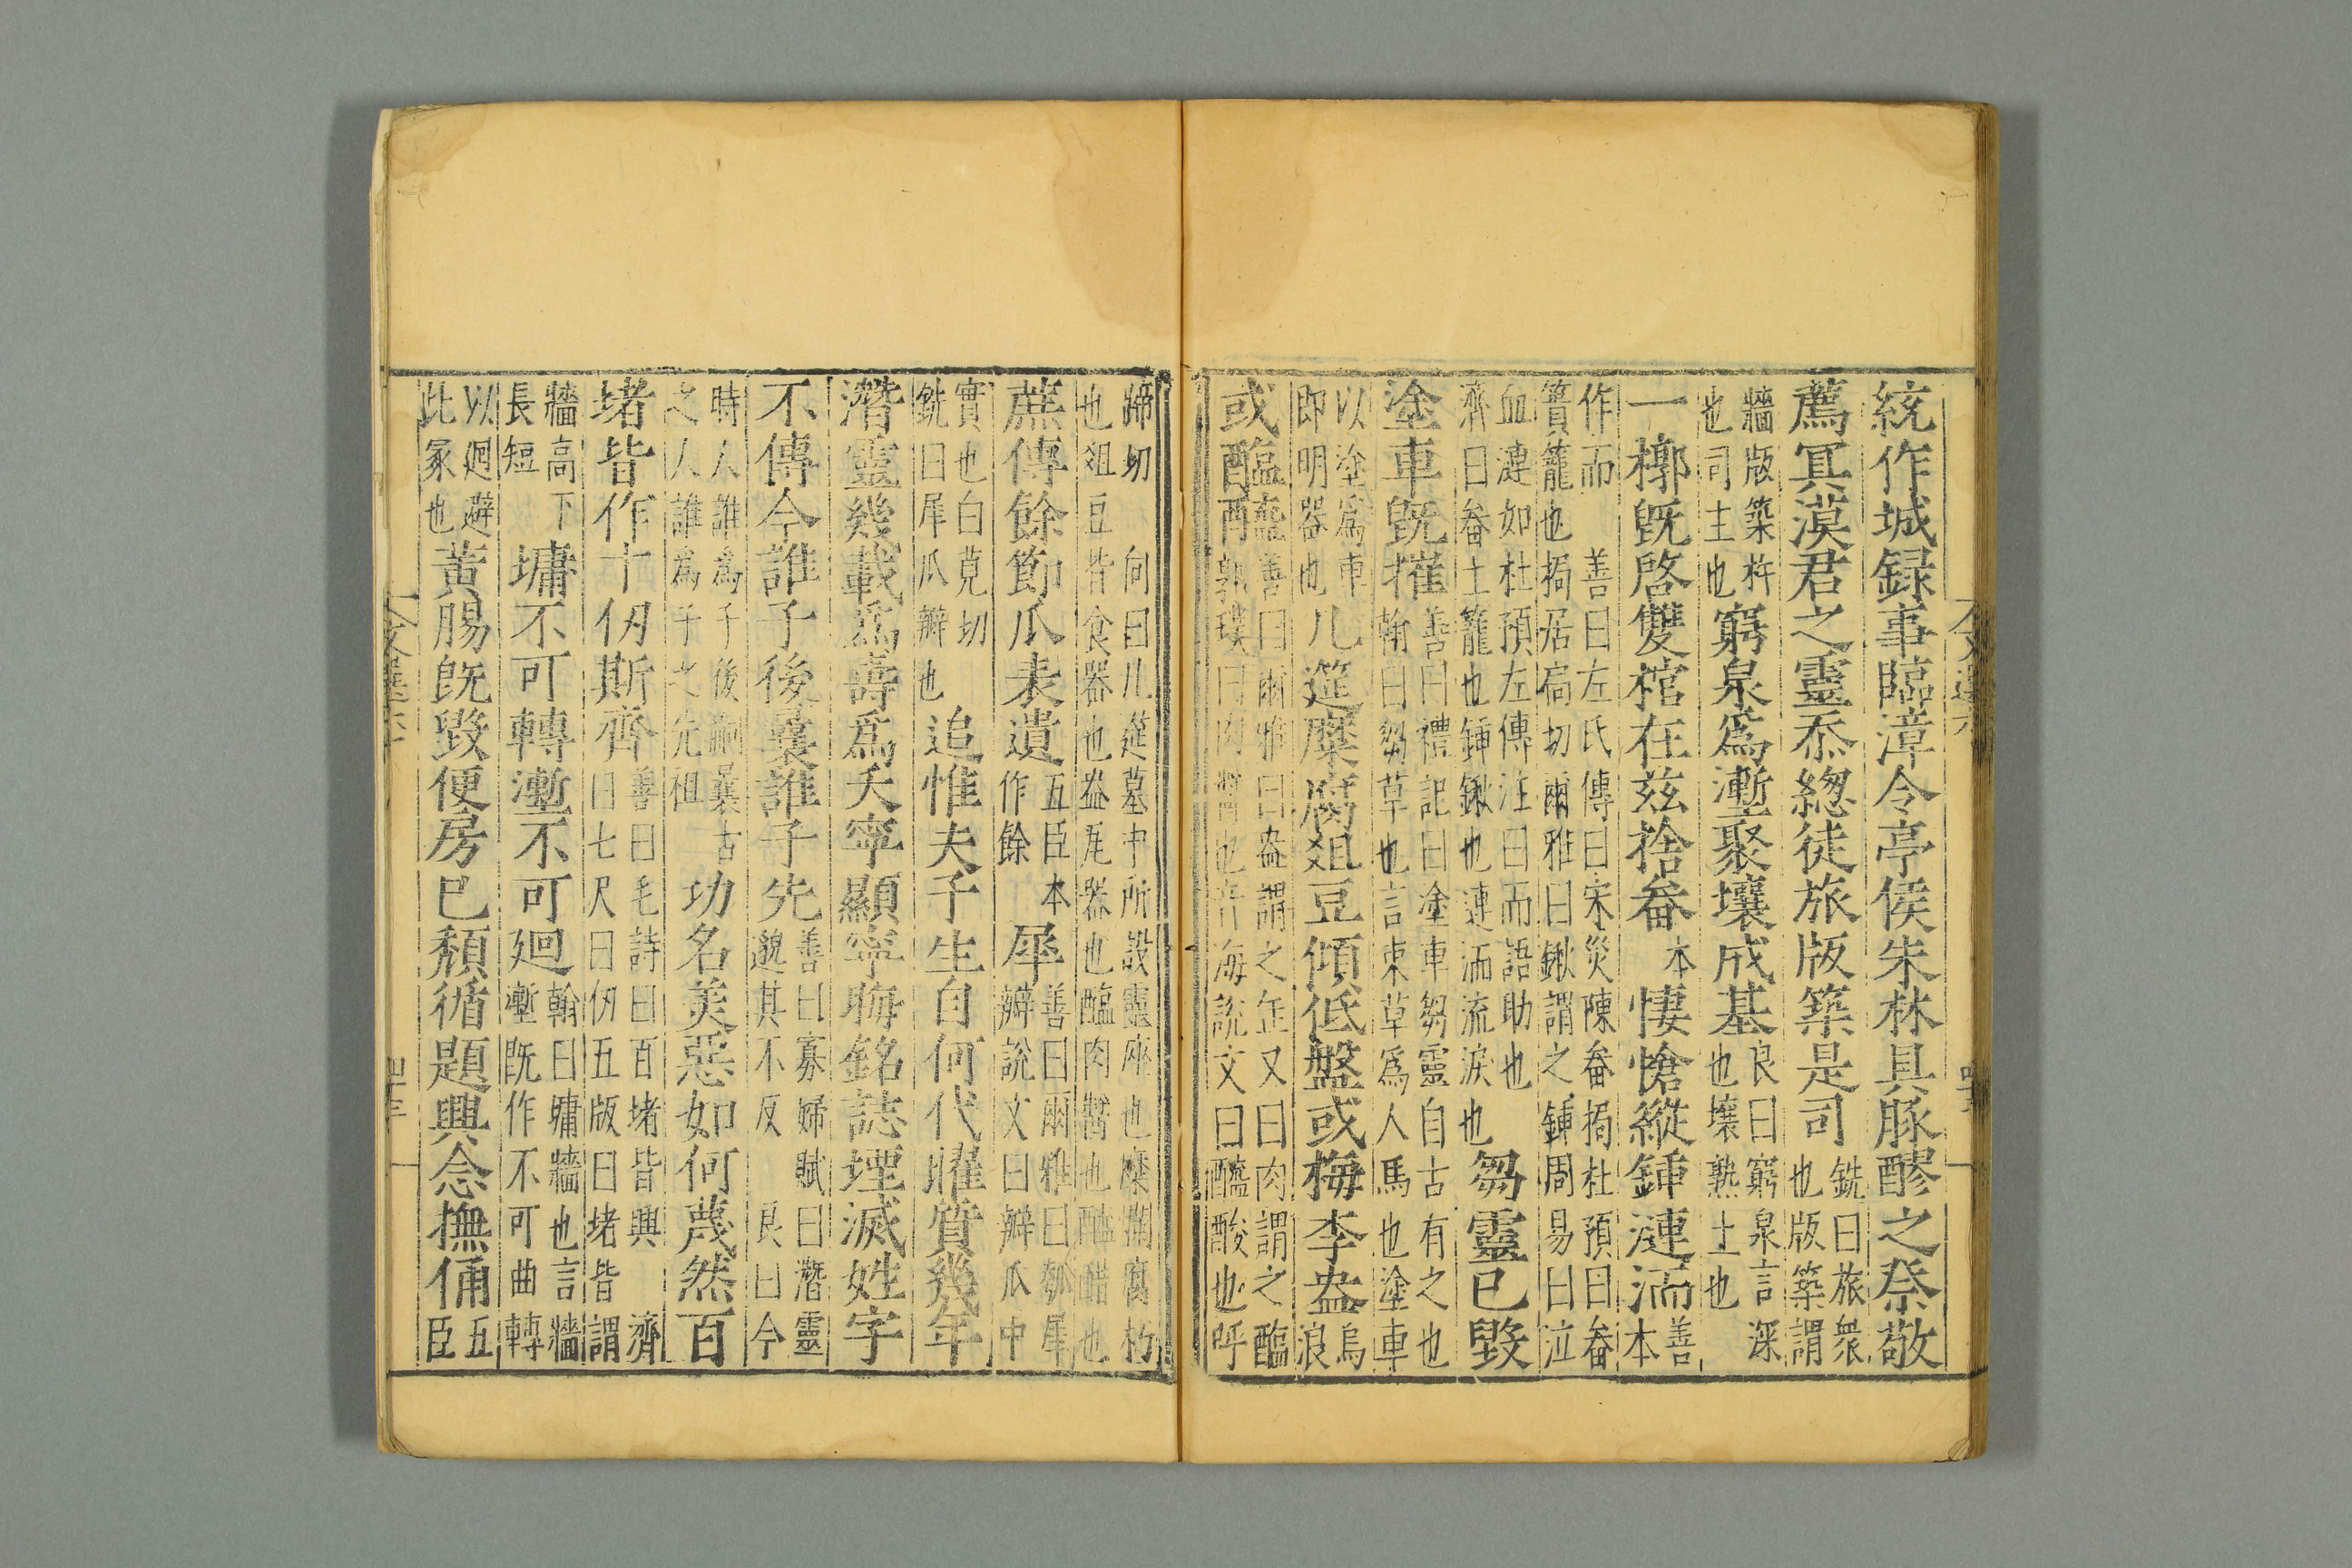 統作城録事臨漳令亭侯朱林具豚醪之祭敬
薦冥漠君之靈忝緫徒旅版築是司銑曰旅衆也版築謂
牆版築杵也司主也窮泉爲壍聚壤成基良曰窮泉言深也壤熟土也
一槨旣啓雙棺在兹捨畚本悽愴縱鍤漣洏善本
作而 善曰左氏傳曰宋災陳畚挶杜預曰畚簣籠也挶居局切爾雅曰鍬謂之鍤周易曰泣
血漣如杜預左傳注曰而語助也濟曰畚土籠也鍤鍬也漣洏流淚也芻靈已毀
塗車旣摧善曰禮記曰塗車芻靈自古有之也翰曰芻草也言束草爲人馬也塗車
以塗爲車即明器也几筵糜腐俎豆傾低盤或梅李盎烏浪
或醢醯善曰爾雅曰盎謂之缶又曰肉謂之醢璞曰肉醬也海說文曰醯酸也呼
蹄切 向曰几筵墓中所設靈座也糜爛腐朽也俎豆皆食器也盎瓦器也醢肉醬也醯醋也
蔗傳餘節瓜表遺五臣本作餘犀善曰爾雅曰瓠犀瓣說文曰瓣瓜中
實也白莧切銑曰犀瓜瓣也追惟夫子生自何代曜質幾年
潛靈幾載爲壽爲夭寧顯寧晦銘誌堙滅姓字
不傳今誰子後曩誰子先善曰寡婦賦曰潛靈邈其不反 良曰今
時人誰爲子後嗣曩古之人誰爲子之先祖功名美惡如何蔑然百
堵皆作十仞斯齊善曰毛詩曰百堵皆興 濟曰七尺曰仞五版曰堵皆謂
牆高下長短墉不可轉壍不可廻翰曰墉牆也言牆壍旣作不可曲轉
以廻避此冢也黃腸旣毀便房已頹循題興念撫俑五臣